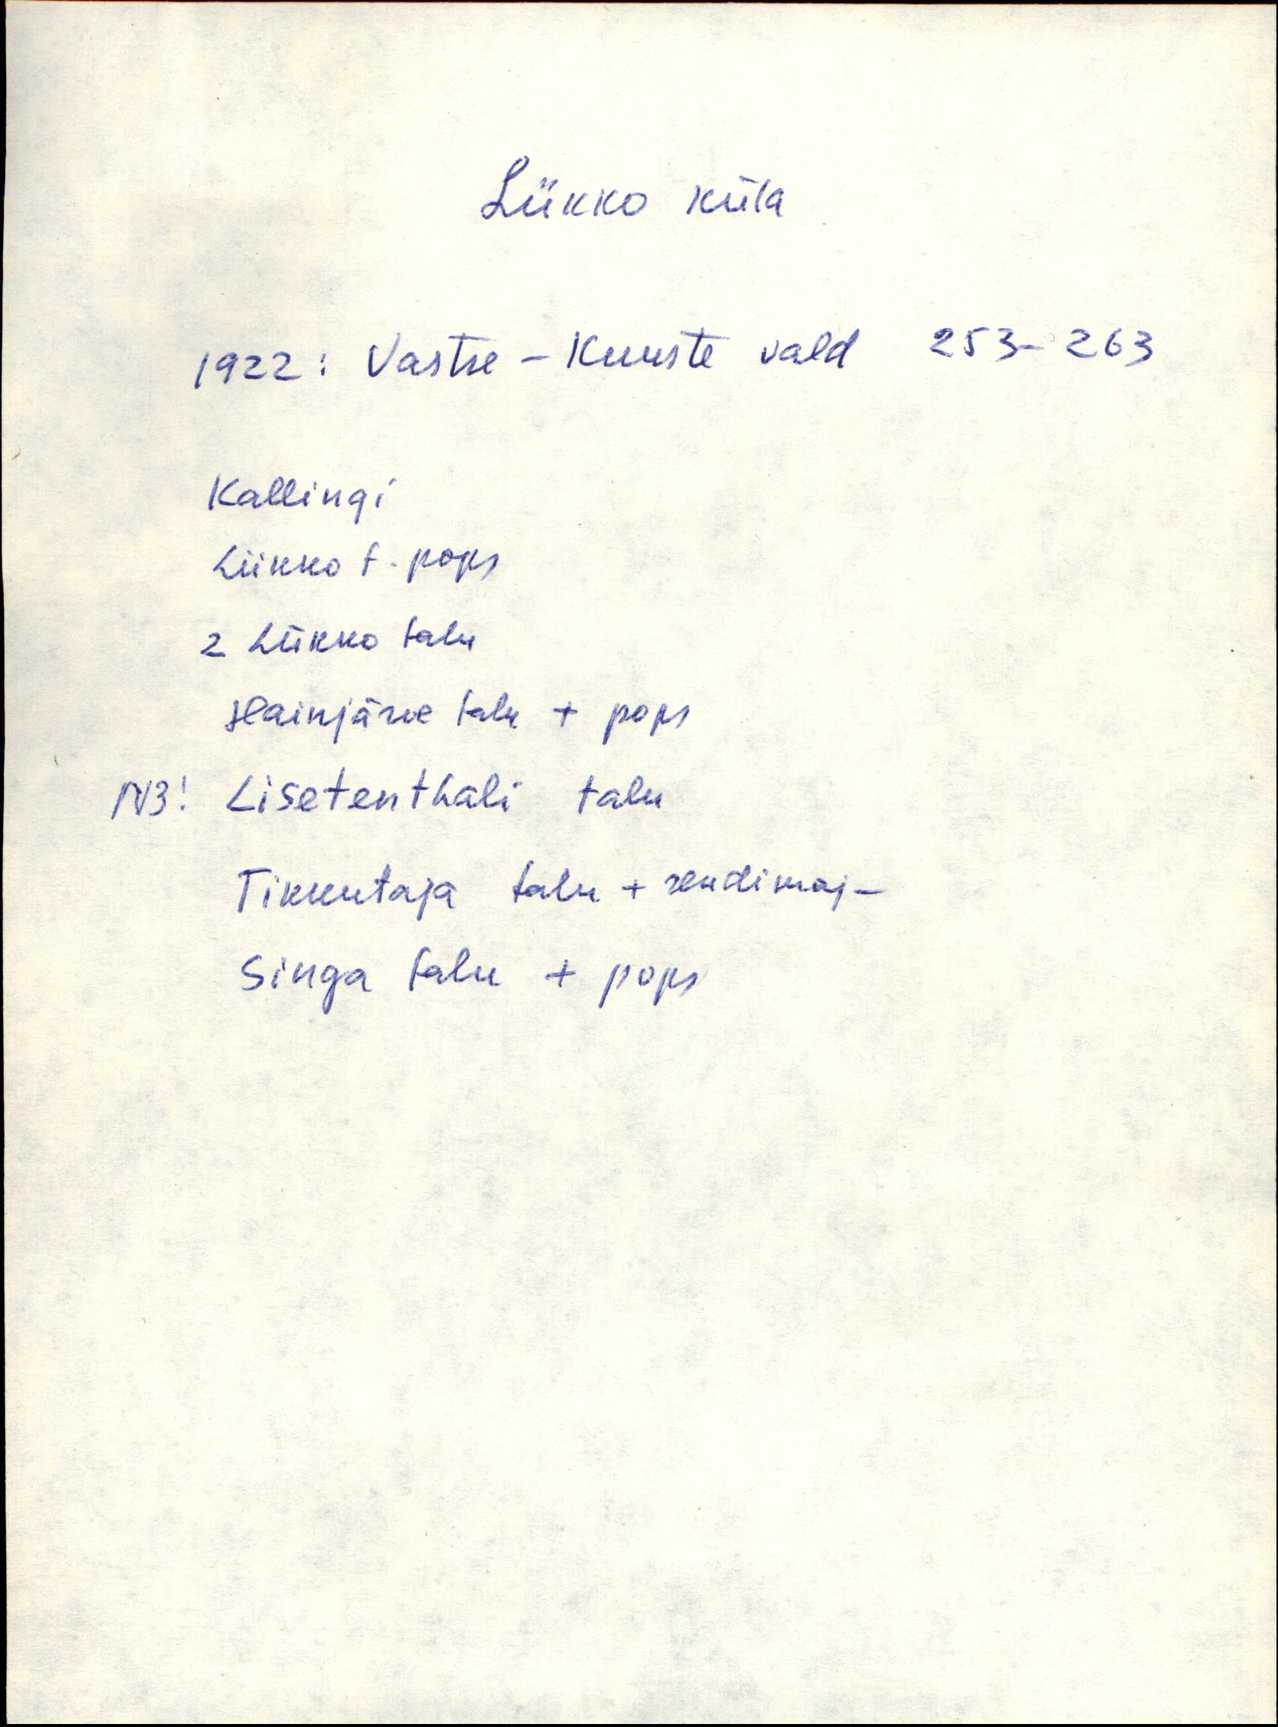 Lükko küla
1922: Vastse-Kuuste vald 253-263
Kallingi
Lükko t. pops
2 Lükko talu
Hainjärve talu + pops
NB! Lisetenthali talu
Tikkutaja talu + rendimaj-
Singa talu + pops